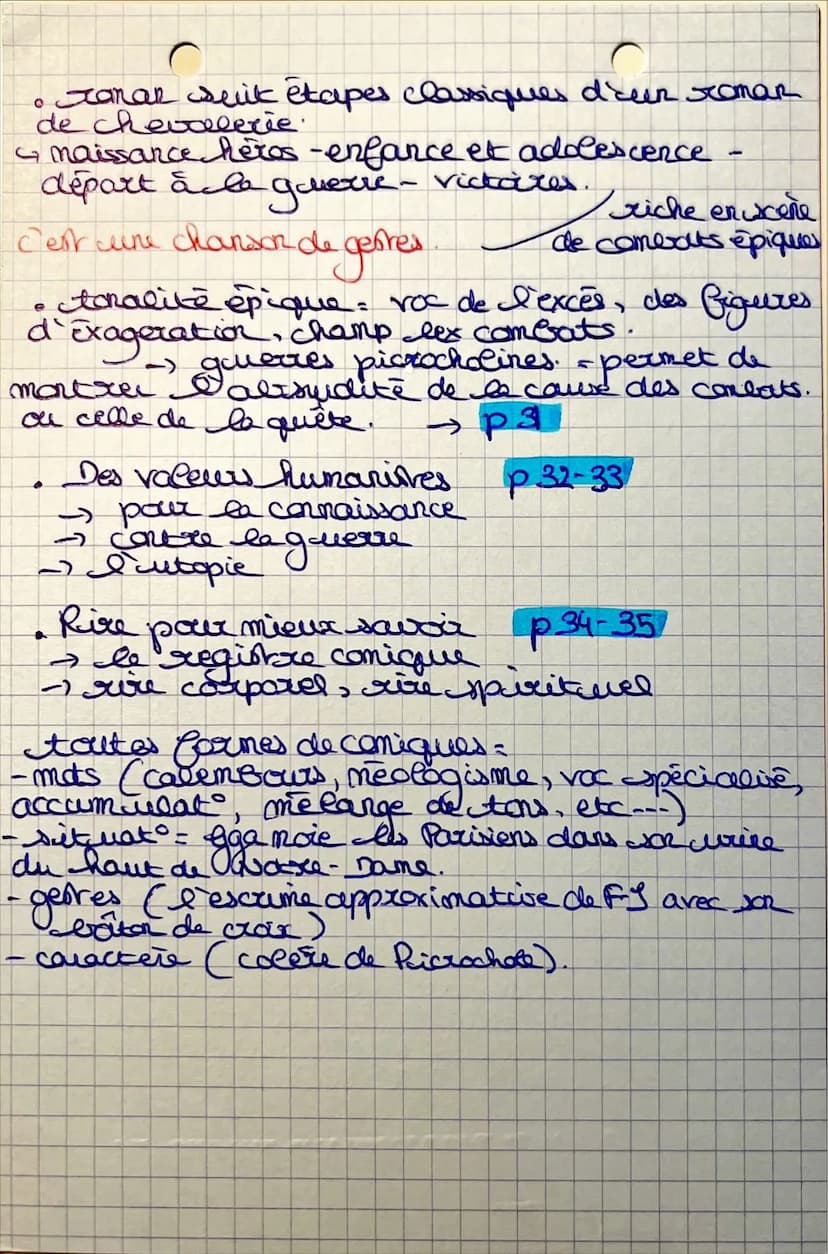 • roman suit étapes classiques d'un roman
de chevalerie.
↳ naissance héros - enfance et adolescence -
départ à la guerre - victoires.
riche en scène
c'est une chanson de gestes.
de combats épiques
• tonalité épique = voc de l'excès, des figures
d'éxagération, champ lex combats.
→ guerres picrocholines. = permet de
montrer l'absurdité de la cause des combats.
ou celle de la quête. → p 31
• Des valeurs humanistes p 32-33
→ pour la connaissance
→ contre la guerre
→ l'utopie
• Rire pour mieux savoir p 34-35
→ le registre comique
→ rire corporel, rire spirituel
toutes formes de comiques =
- mots (calembours, néologisme, voc spécialisé,
accumulat°, mélange de tons, etc---)
- situat° = Gga noie les Parisiens dans son urine
du haut de Notre-Dame.
- gestes (l'escrime approximative de FJ avec son
bâton de croix)
- caractère (colère de Picrochole).